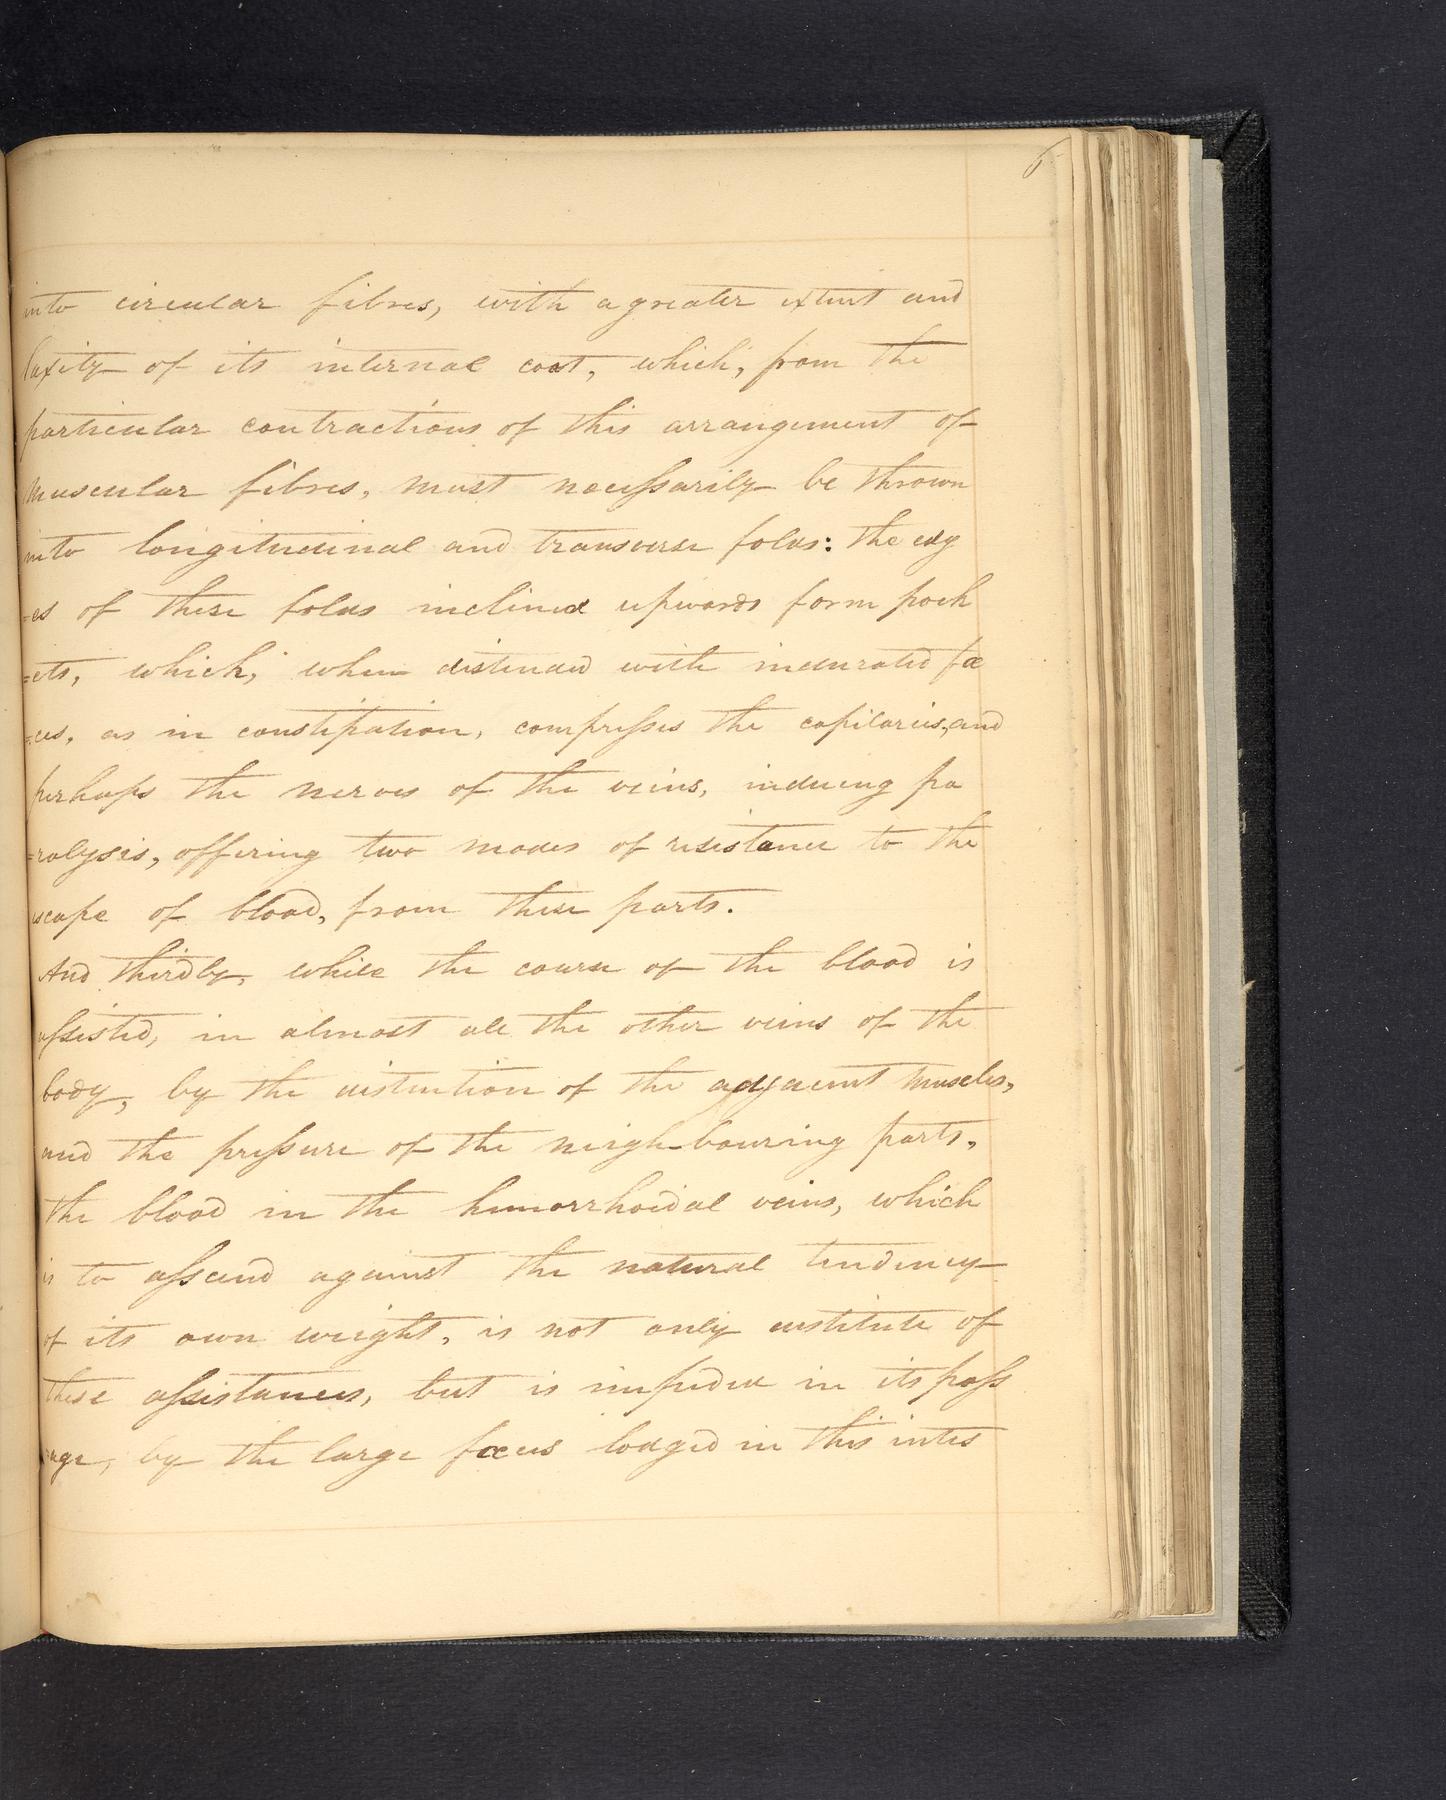 6
into circular fibres, with a greater extent and
laxity of its internal coat, which, from the
particular contractions of this arrangement of
muscular fibres, must necessarily be thrown
into longitudinal and transverse folds: the edg
=es of these folds inclined upwards form pock
=ets, which, when distended with indurated fæ
=ces, as in constipation, compresses the capilaries, and
perhaps the nerves of the veins, inducing pa
=ralysis, offering two modes of resistance to the
escape of blood, from these parts.
And thirdly, while the course of the blood is
assisted, in almost all the other veins of the
body, by the distention of the adjacent muscles,
and the pressure of the neighbouring parts,
the blood in the hemorrhoidal veins, which
is to asscend against the natural tendency
of its own weight, is not only destitute of
these assistances, but is impeded in its pass
age, by the large fæces lodged in this intes